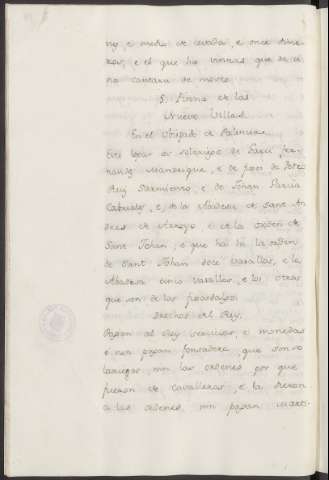 no, e medio de cevada, e once dine-
ros, e el que ha viñas que da vi
no cantara de mosto.
S. Pedro de las
Nueve Villas
En el Obispado de Palencia.
Este logar es solariego de Garci Fer-
randez Manrrique, e de fijos de Pero
Ruy Sarmiento, e de Johan Garcia
, e de la Abadesa de Sant An
dres de Arroyo, e de la orden de
Sant Johan, e que ha hi la orden
de Sant Johan doce vasallos, e la
Abadesa cinco vasallos, e los otros
que son de los fijosdalgo.
Derechos del Rey.
Pagan al Rey servicios, e monedas
e non pagan fonsadera, que son so
lariegos, nin las ordenes por que
fueron de cavalleros, e la dieron
a las ordenes, nin pagan marti-